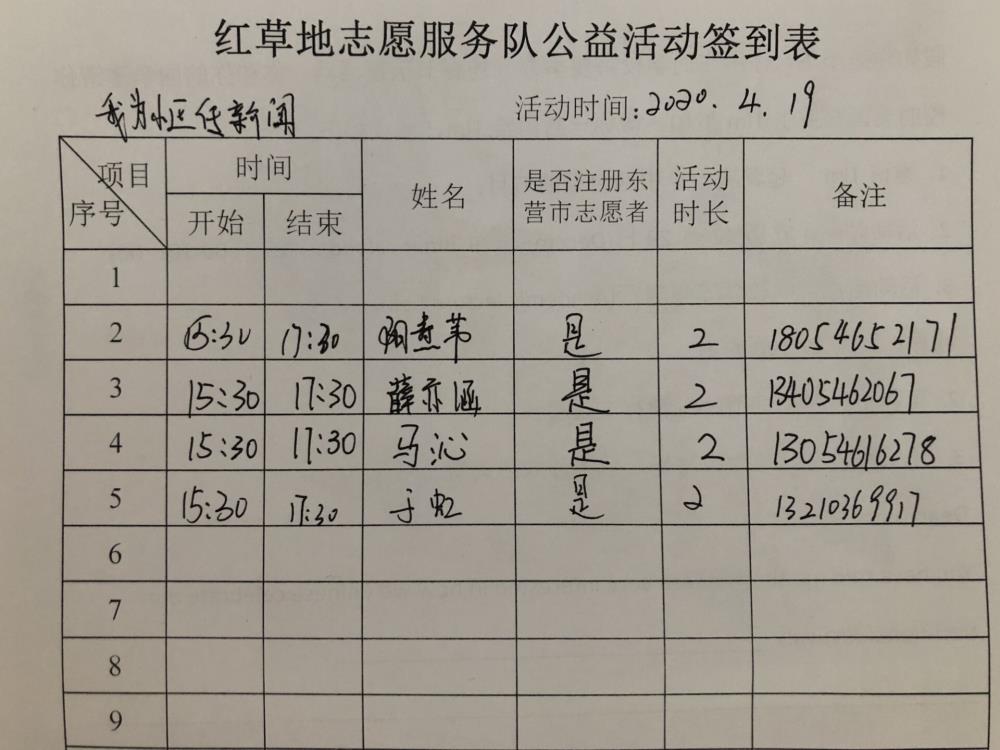 红草地志愿服务队公益活动签到表
我为小区传新闻 活动时间:2020.4.19
项目 时间 姓名 是否注册东营市志愿者 活动时长 备注
序号 开始 结束
1
2 15:30 17:30 是 2 18054652171
3 15:30 17:30 薛亦涵 是 2 13405462067
4 15:30 17:30 马沁 是 2 13054616278
5 15:30 17:30 于虹 是 2 13210369917
6
7
8
9